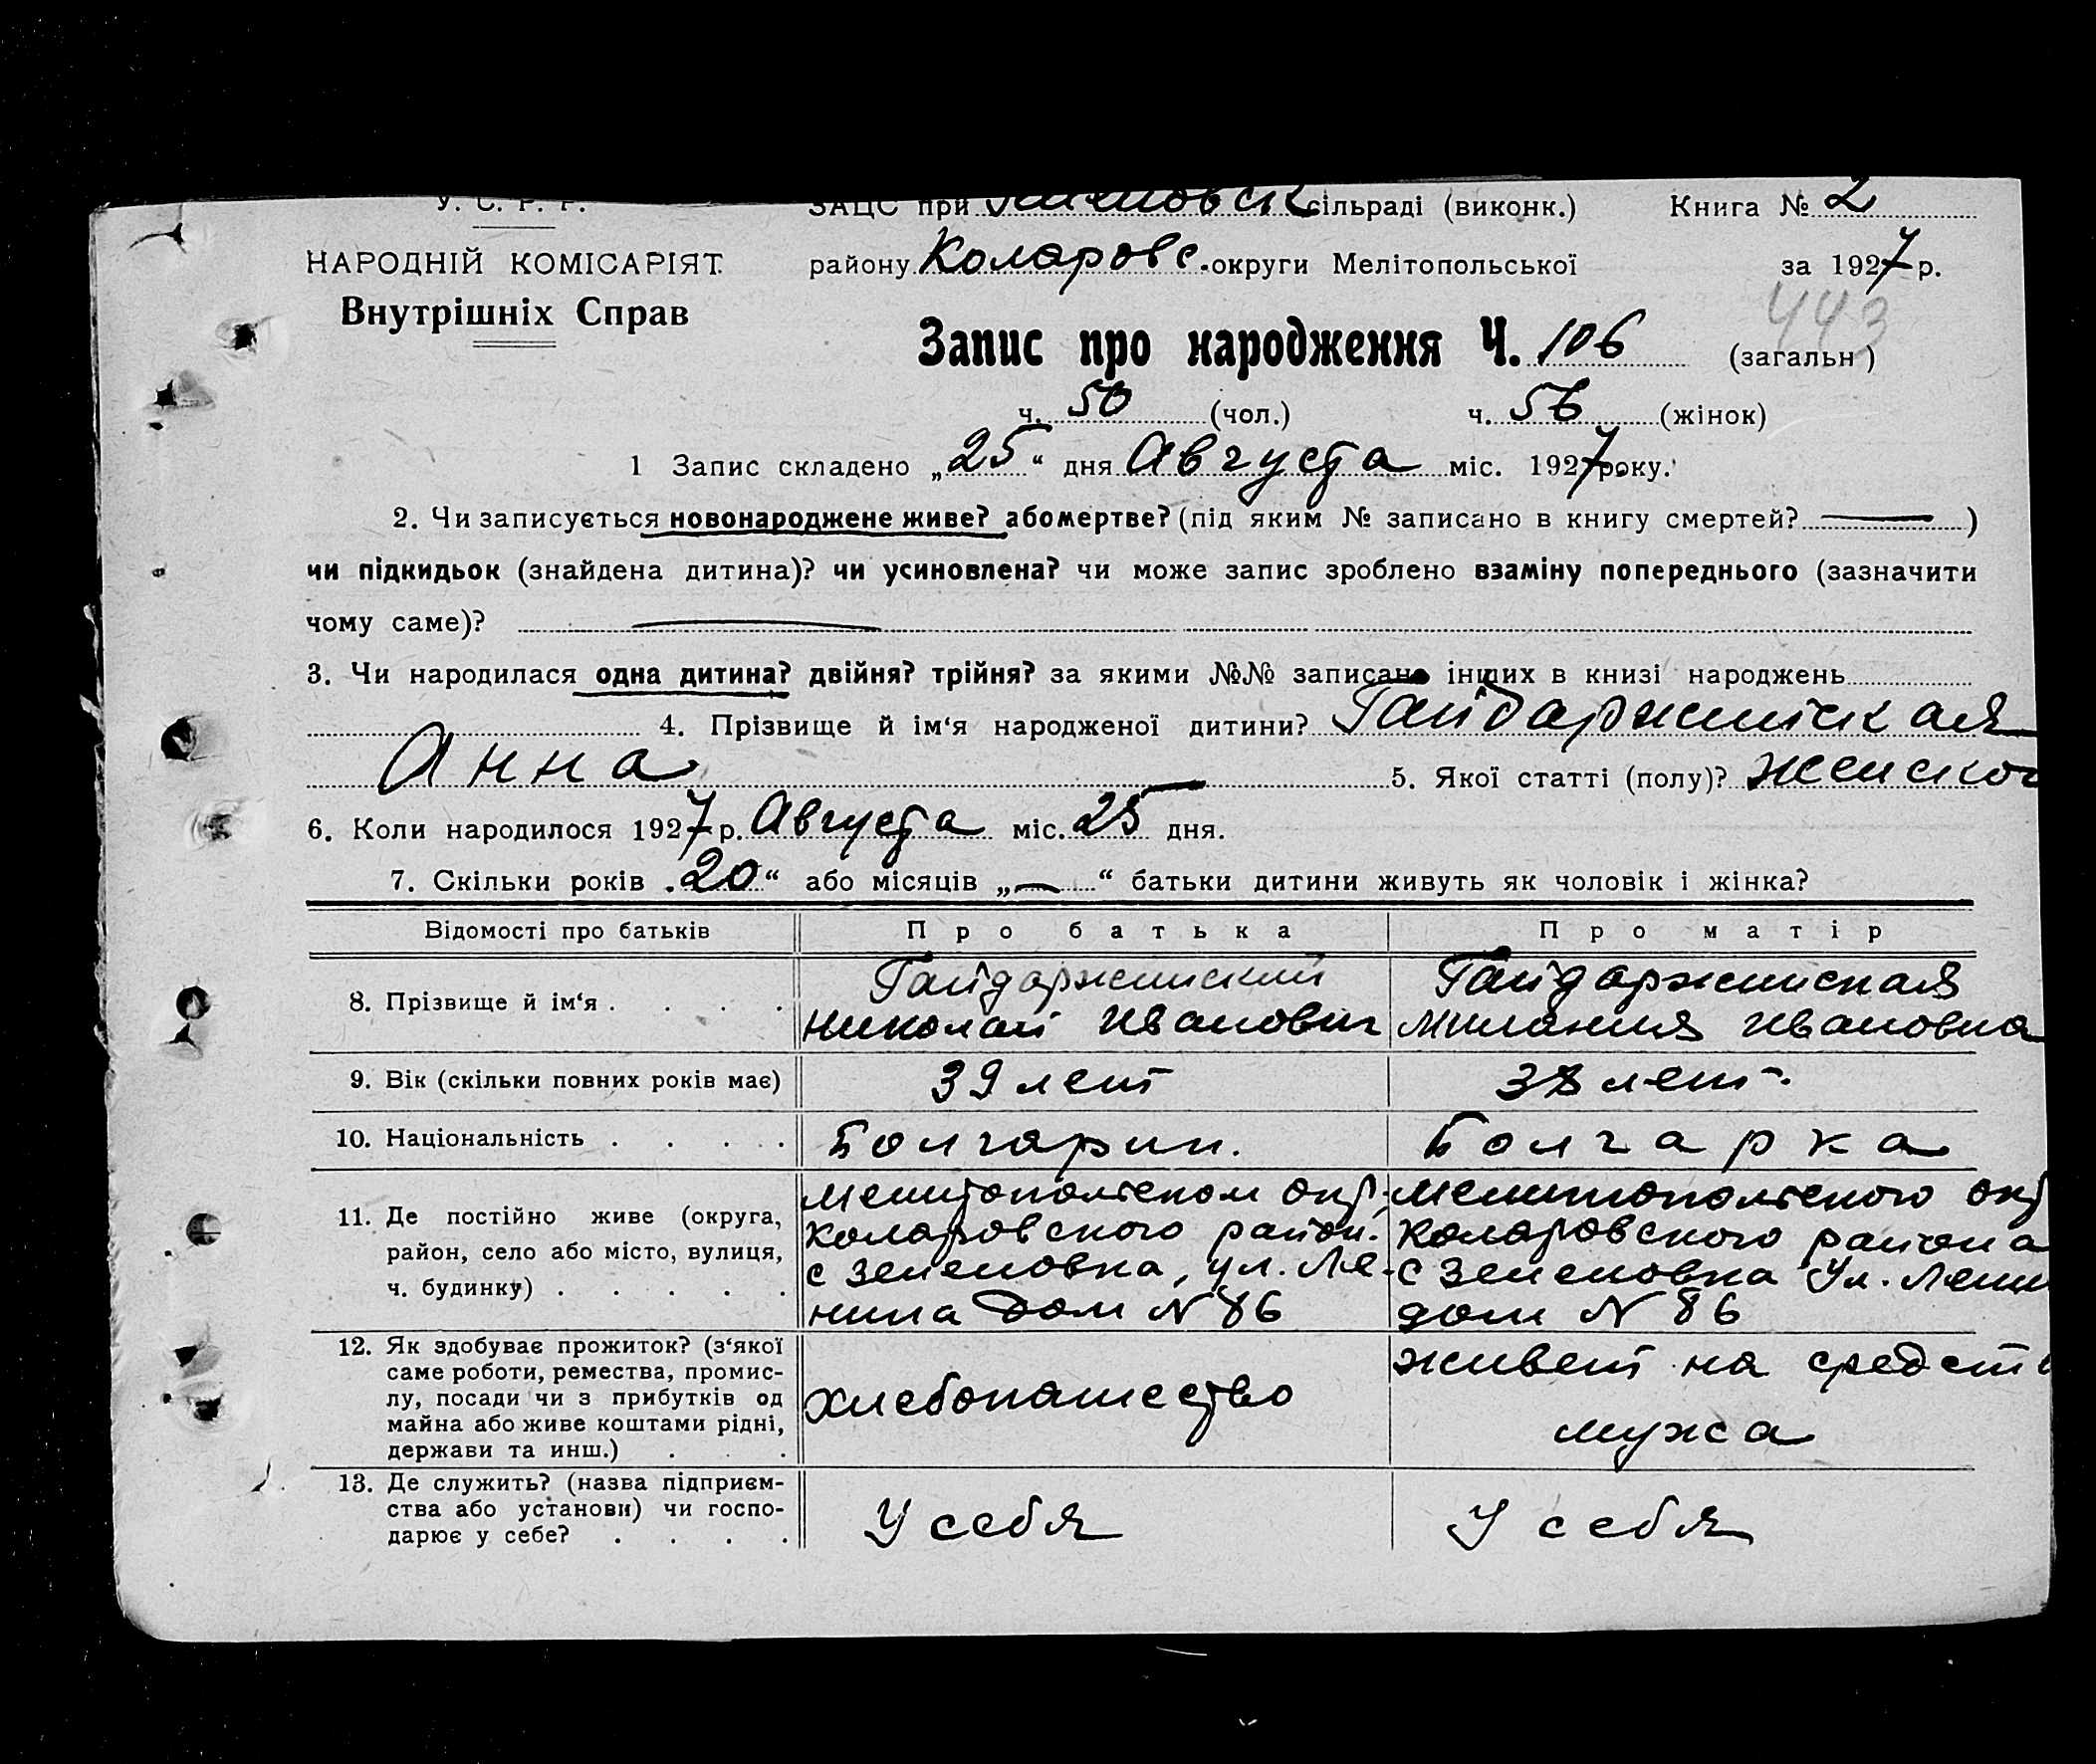 У. С. Р. Р. ЗАЦС при сільраді (виконк.) Книга № 2
НАРОДНІЙ КОМІСАРІЯТ району Коларовс. округи Мелітопольської за 1927 р.
Внутрішніх Справ
443
Запис про народження Ч. 106 (загальн )
ч. 50 (чол.) ч. 56 (жінок)
1 Запис складено „25“ дня Августа міс. 1927 року.
2. Чи записується новонароджене живе? або мертве? (під яким № записано в книгу смертей? — )
чи підкидьок (знайдена дитина)? чи усиновлена? чи може запис зроблено взаміну попереднього (зазначити
чому саме)? —
3. Чи народилася одна дитина? двійня? трійня? за якими №№ записано інших в книзі народжень
4. Прізвище й ім‘я народженої дитини? Гайдаржийская
Анна — 5. Якої статті (полу)? женског
6. Коли народилося 1927 р. Августа міс. 25 дня.
7. Скільки років „20“ або місяців „—“ батьки дитини живуть як чоловік і жінка?
Відомості про батьків Про батька Про матір
8. Прізвище й ім‘я . . . .
Гайдаржийский
Николай Иванович
Гайдаржийская
Милания Ивановна
9. Вік (скільки повних років має) 39 лет 38 лет.
10. Національність . . . . Болгарин. Болгарка
11. Де постійно живе (округа,
район, село або місто, вулиця,
ч. будинку) . . . . .
Мелитопольском окр.
Коларовского район.
с Зеленовка, ул. Ле-
нина дом N 86
Мелитопольского окр
Коларовского района
с Зеленовка Ул. Ленин
дом N 86
12. Як здобуває прожиток? (з‘якої
саме роботи, ремества, промис-
лу, посади чи з прибутків од
майна або живе коштами рідні,
держави та инш.) . . .
хлебопашество
живет на средств
мужа
13. Де служить? (назва підприєм-
ства або установи) чи госпо-
дарює у себе? . . . .
У себя
У себя